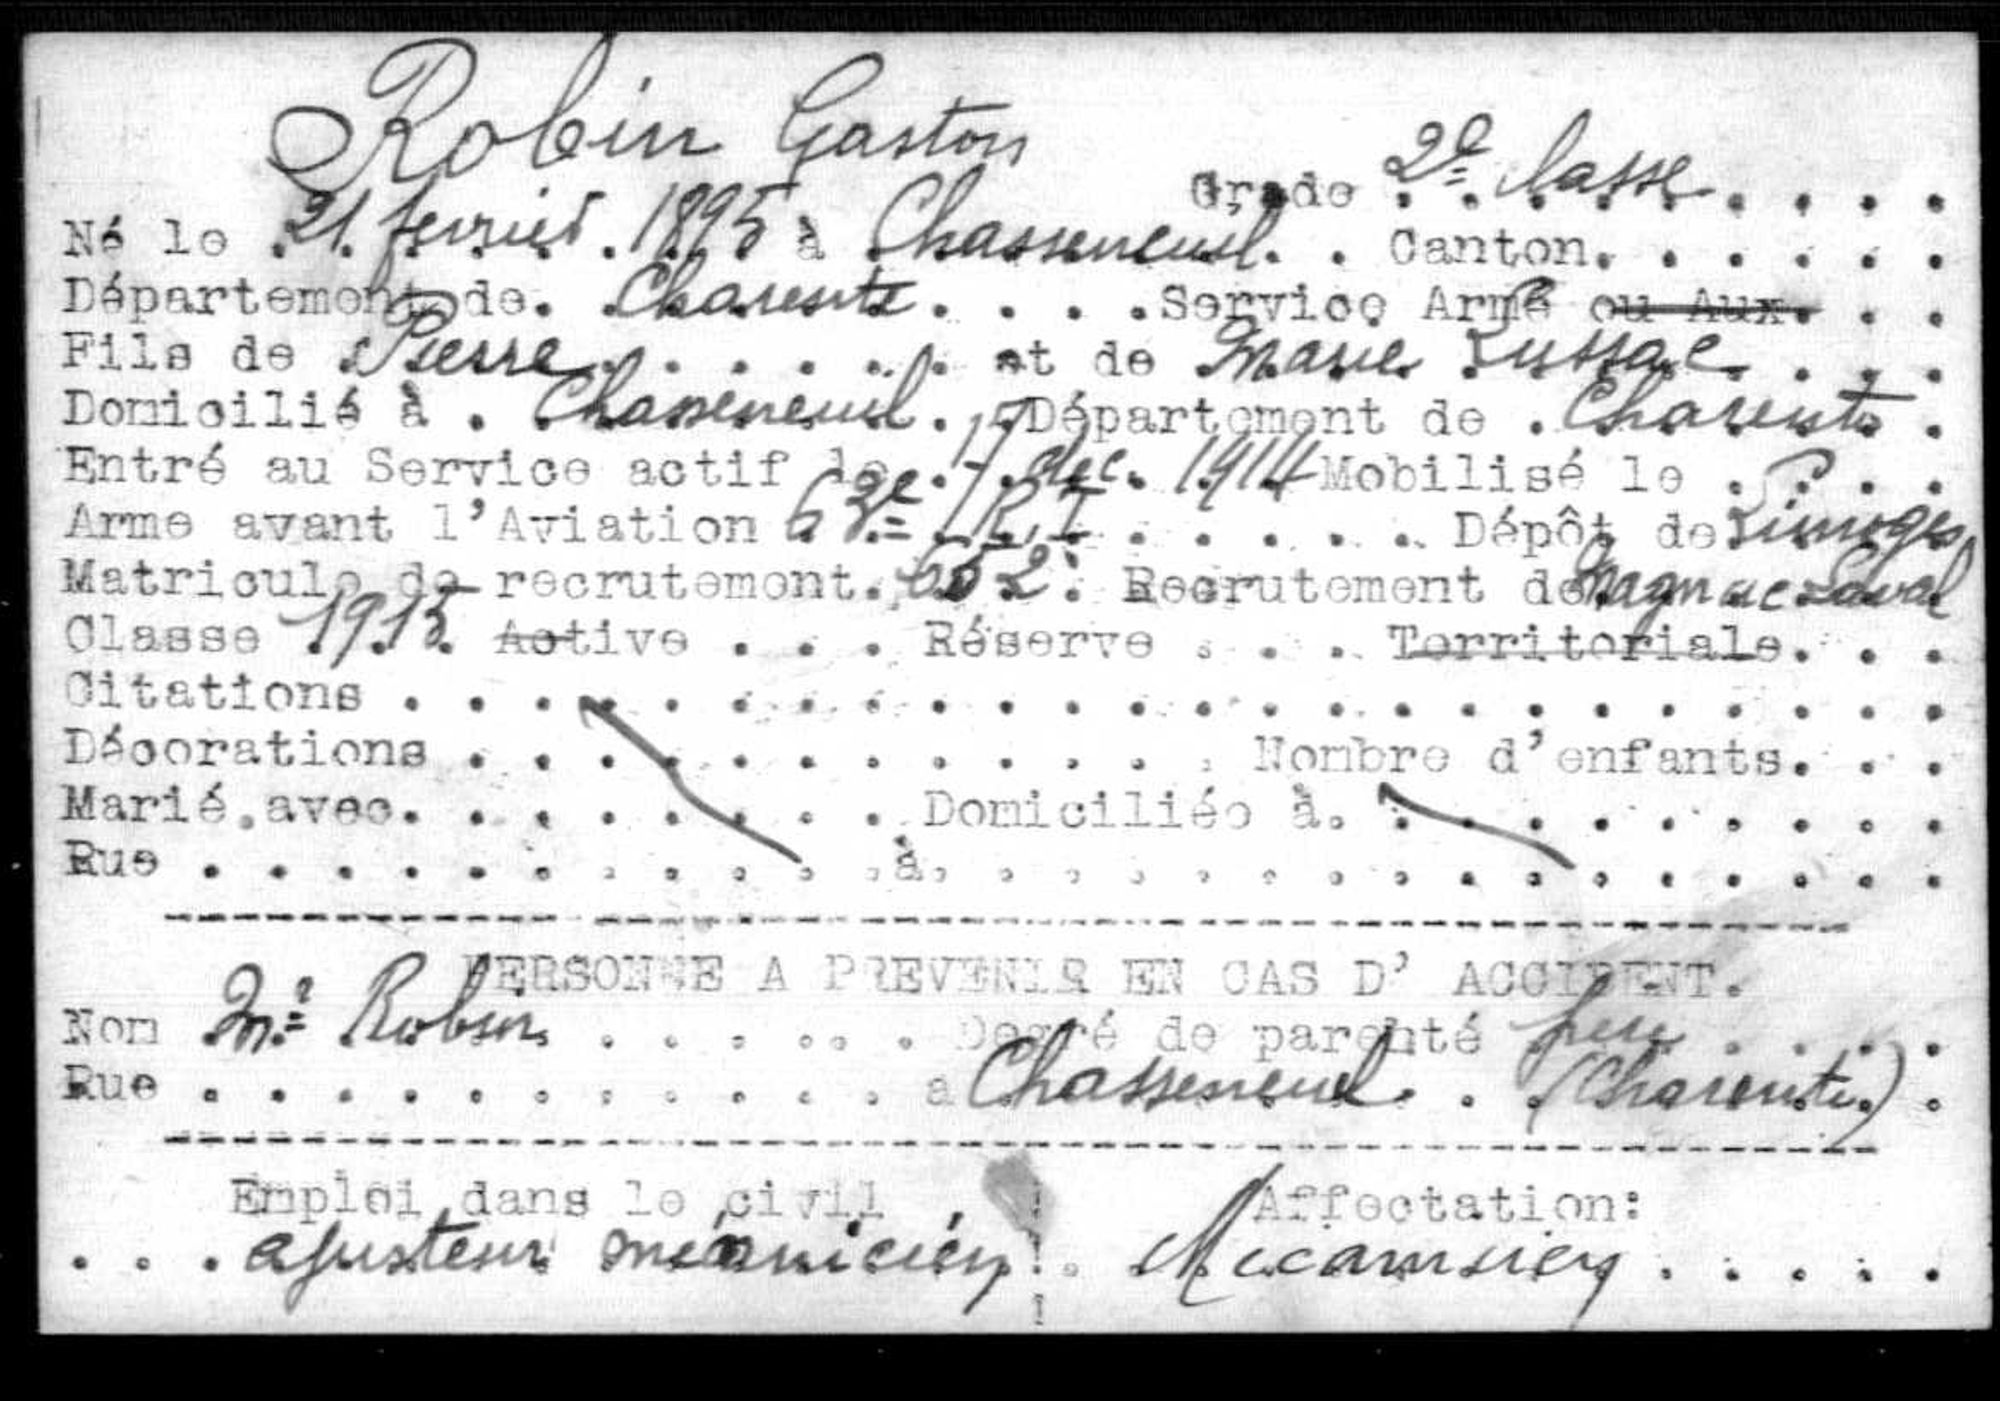 Robin Gaston
Grade 2e classe
Né le 21 février 1895 à Chasseneuil Canton
Département de Charente Service Armé ou Aux.
Fils de Pierre et de Marie Lussac
Domicilié à Chasseneuil Département de Charente
Entré au Service actif le 17 déc. 1914 Mobilisé le
Arme avant l'Aviation 63e R.I Dépôt de Limoges
Matricule de recrutement 652 Recrutement de Magnac Laval
Classe 1915 Active Réserve Territoriale
Citations
Décorations Nombre d'enfants
Marié avec Domiciliée à
Rue à
PERSONNE A PREVENIR EN CAS D' ACCIDENT.
Nom Mr Robin Degré de parenté père
Rue a Chasseneuil (Charente)
Emploi dans le civil Affectation:
ajusteur mécanicien Mécanicien